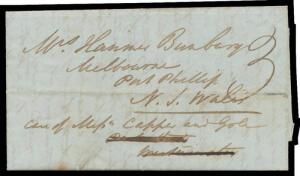 Mrs Hanmer Bunbury
Melbourne
Port Phillip
N. S. Wales
care of Messrs Cappe and Gole
3